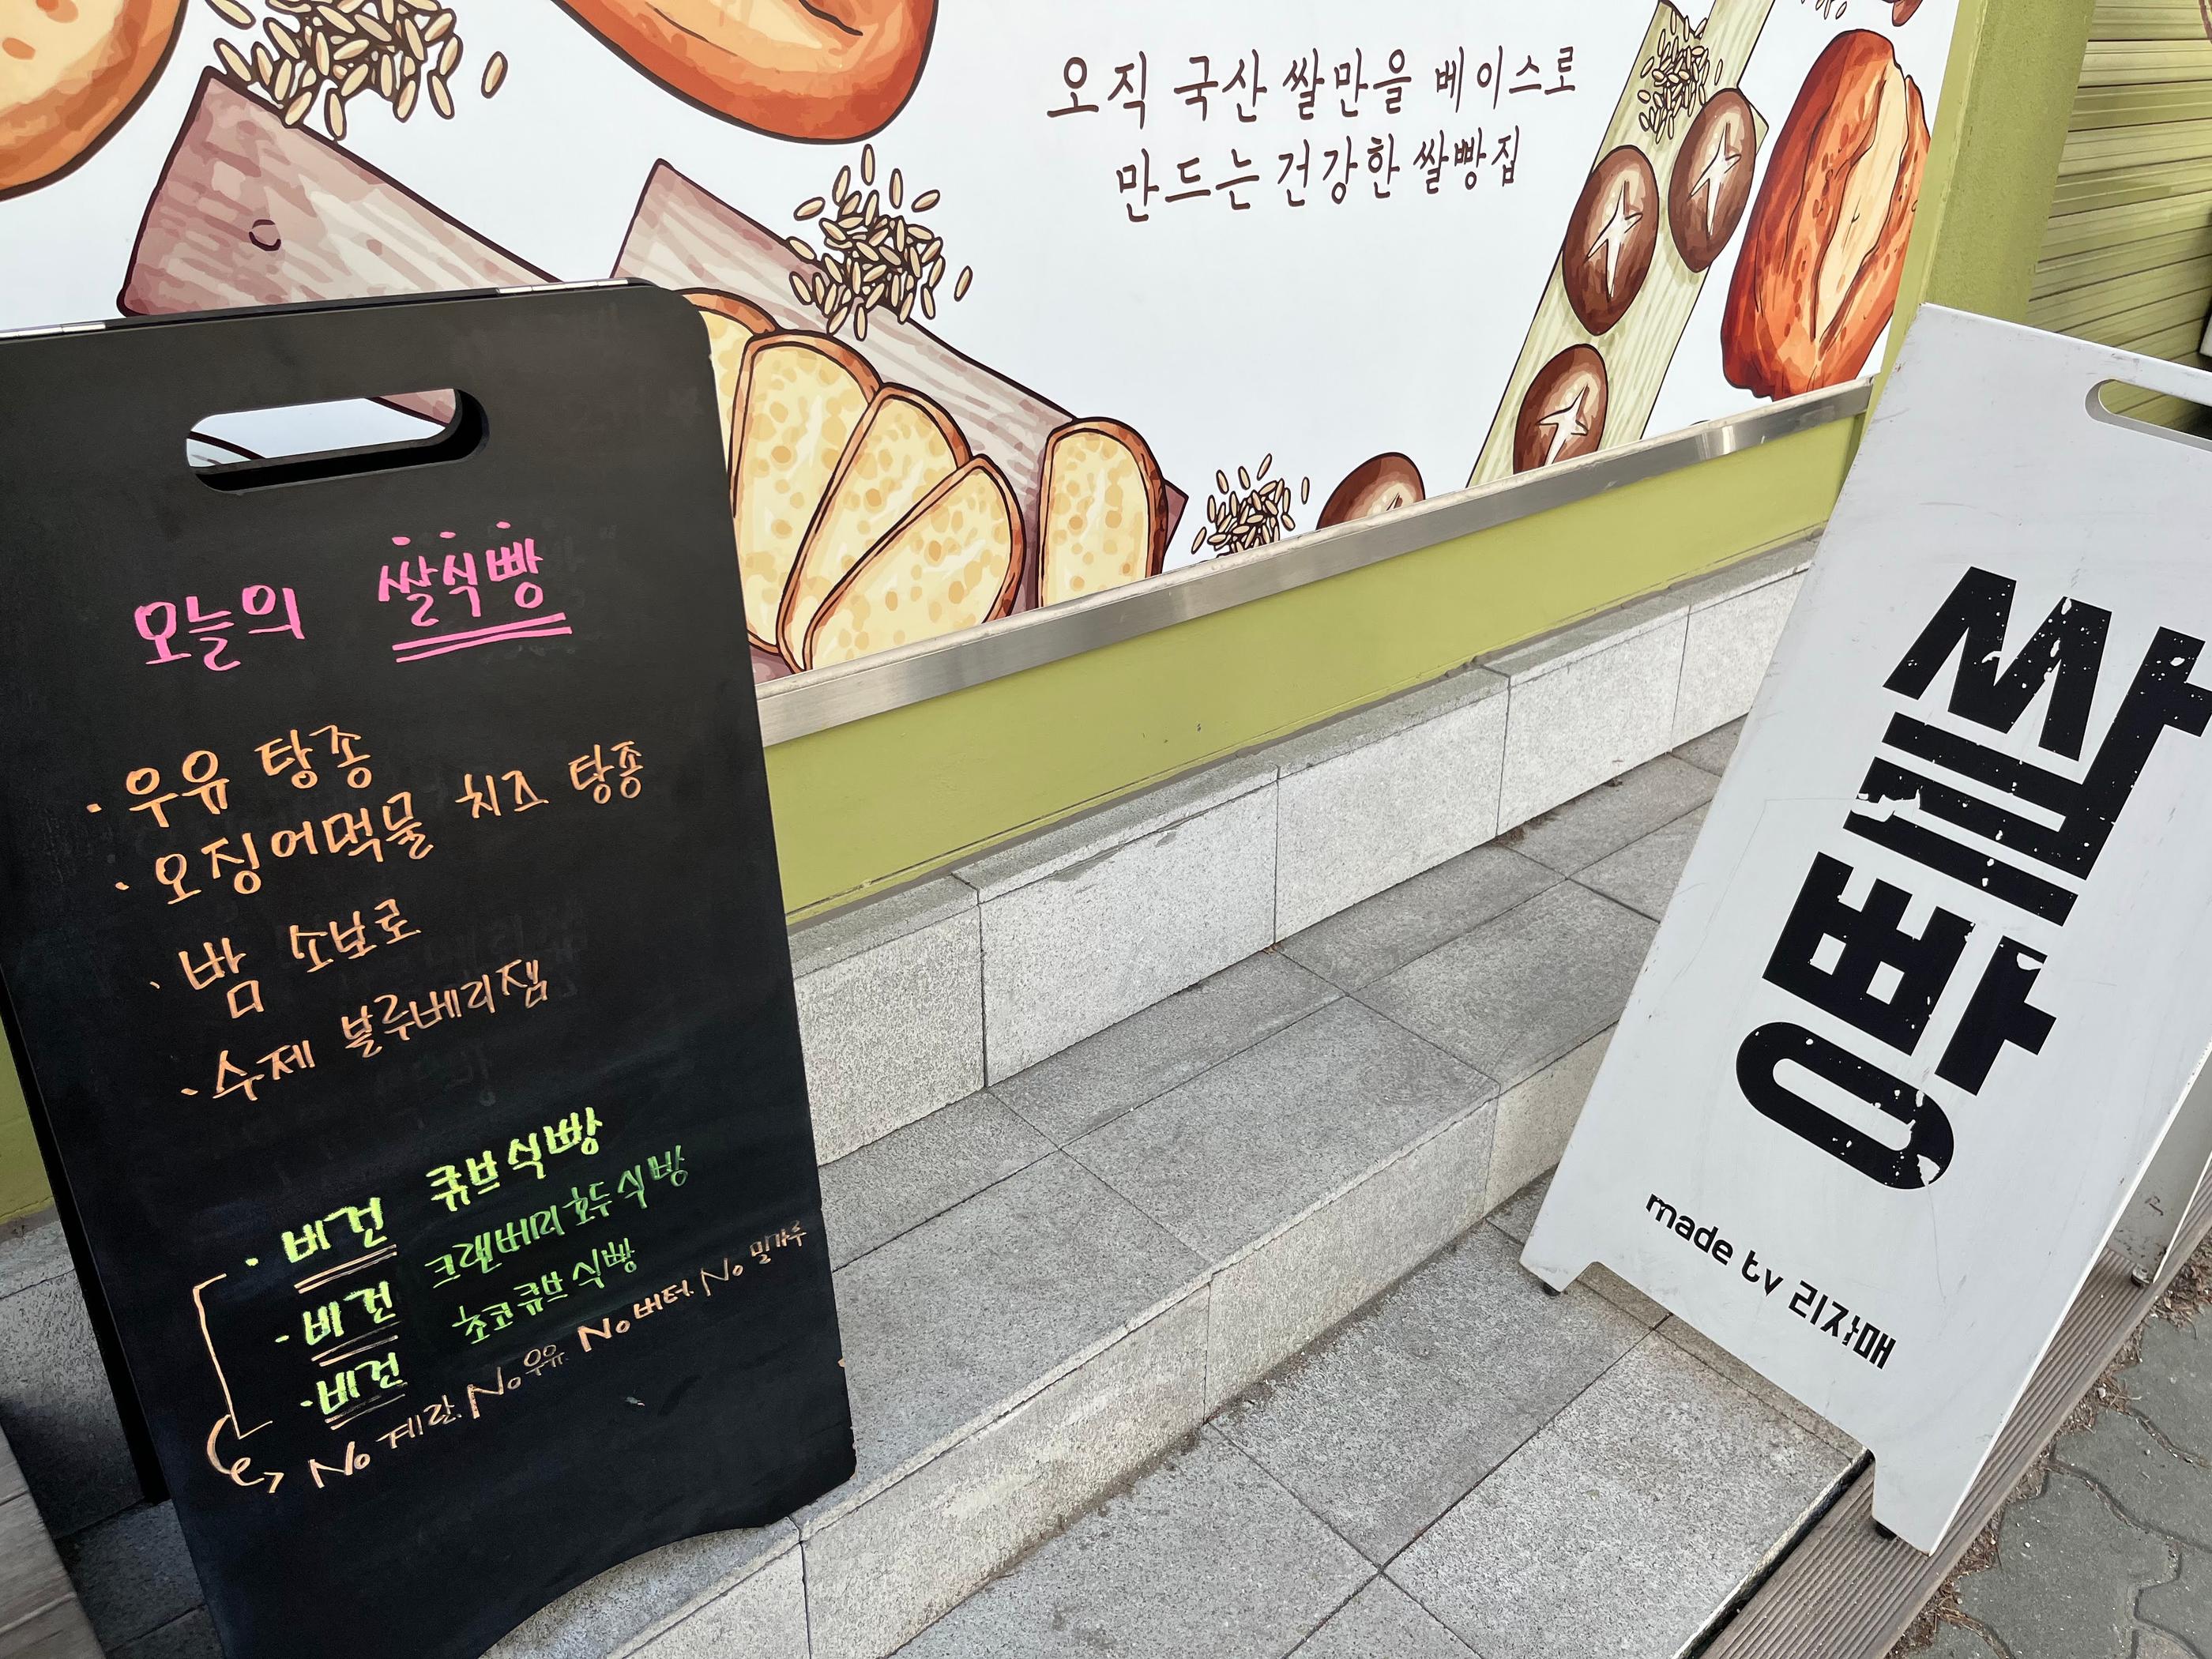 오직 국산 쌀만을 베이스로
만드는 건강한 쌀빵집
오늘의 쌀식빵
· 우유 탕종
· 오징어먹물 치즈 탕종
· 밤 소보로
· 수제 블루베리잼
· 비건 큐브식빵
· 비건 크랜베리호두식빵
· 비건 초코큐브식빵
No 계란. No 우유. No 버터. No 밀가루
쌀빵
made tv 리자매